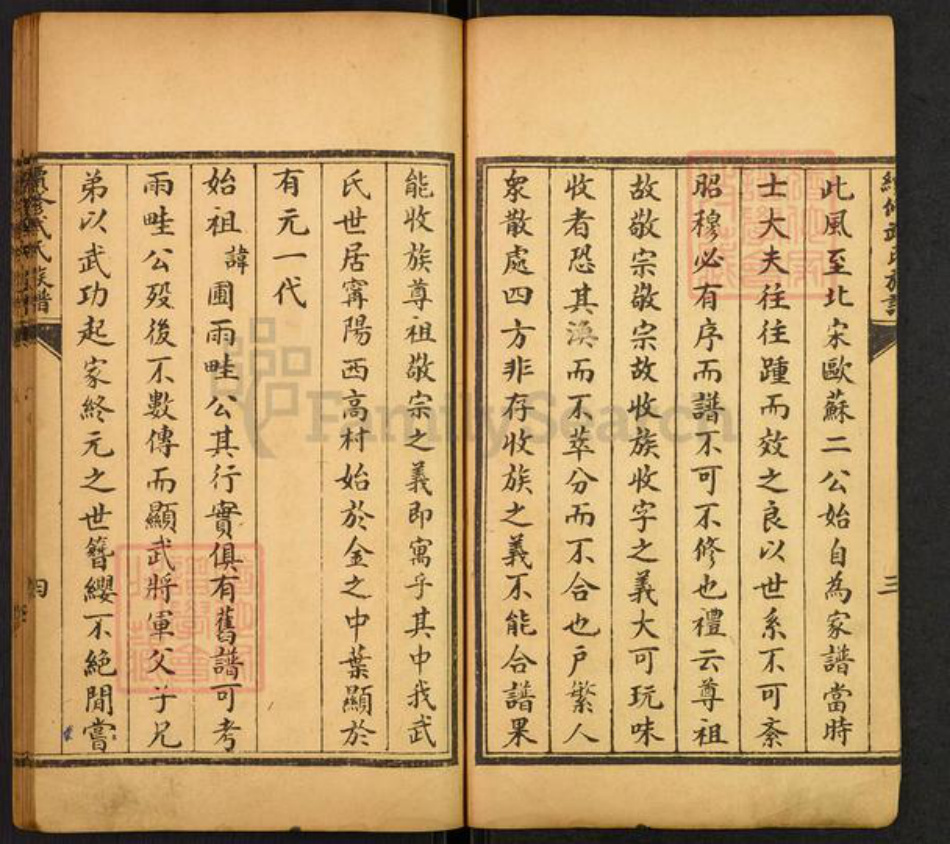 續修武氏族譜
三
此風至北宋歐蘇二公始自為家譜當時
士大夫往往踵而效之良以世系不可紊
昭穆必有序而譜不可不修也禮云尊祖
故敬宗敬宗故收族收字之義大可玩味
收者恐其渙而不萃分而不合也戶繁人
衆散處四方非存收族之義不能合譜果
能收族尊祖敬宗之義即寓乎其中我武
氏世居寗陽西高村始於金之中葉顯於
有元一代
始祖諱圃雨畦公其行實俱有舊譜可考
雨畦公歿後不數傳而顯武將軍父子兄
弟以武功起家終元之世簪纓不絶間嘗
續修武氏族譜
四
FamilySearch